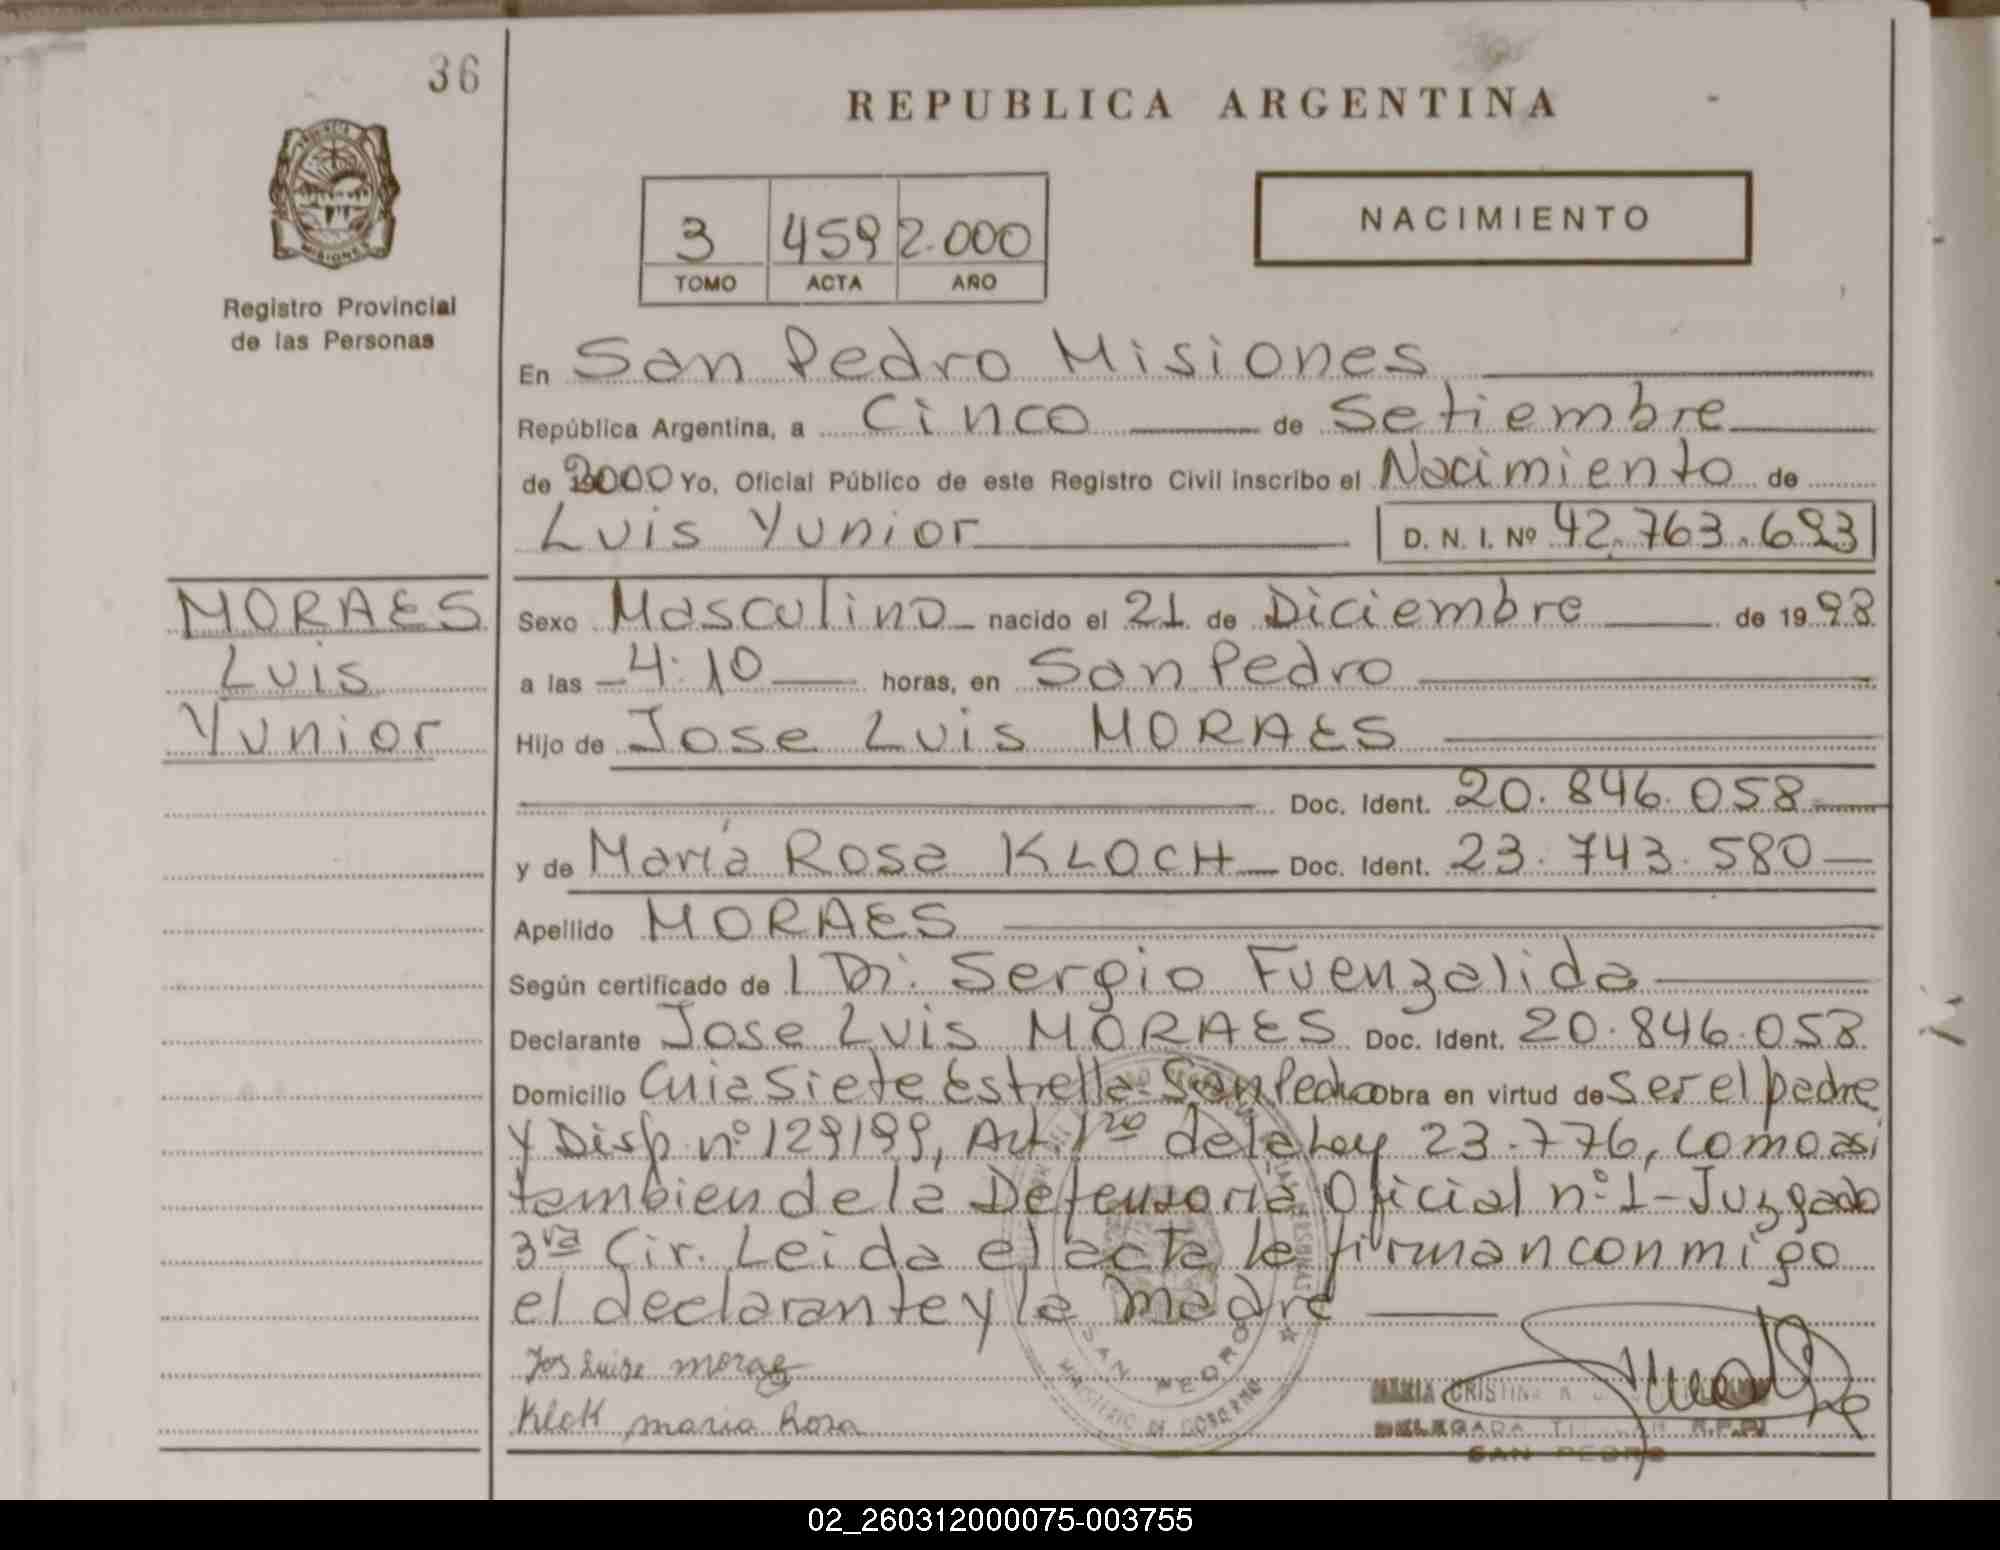 36
REPUBLICA ARGENTINA
NACIMIENTO
3 459 2.000
TOMO ACTA AÑO
Registro Provincial
de las Personas
En San Pedro Misiones
República Argentina, a Cinco de Setiembre
de 2000 Yo, Oficial Público de este Registro Civil inscribo el Nacimiento de
Luis Yunior D. N. I. Nº 42.763.693
MORAES
Luis
Yunior
Sexo Masculino nacido el 21 de Diciembre de 1998
a las 4:10 horas, en San Pedro
Hijo de Jose Luis MORAES
Doc. Ident. 20.846.058
y de María Rosa KLOCH Doc. Ident. 23.743.580
Apellido MORAES
Según certificado de l Dr. Sergio Fuenzalida
Declarante Jose Luis MORAES Doc. Ident. 20.846.058
Domicilio Cuia Siete Estrella-San Pedro obra en virtud de Ser el padre
y Disp. nº 129199, Art. 1ro de la Ley 23.776, como asi
tambien de la Defensoria Oficial nº 1-Juzgado
3ra Cir. Leida el acta le firman conmigo
el declarante y la madre
SAN PEDRO
MINISTERIO DE GOBIERNO
Klok maria Rosa
MARIA CRISTINA
DELEGADA TITULAR R.P.P.
SAN PEDRO
02_260312000075-003755